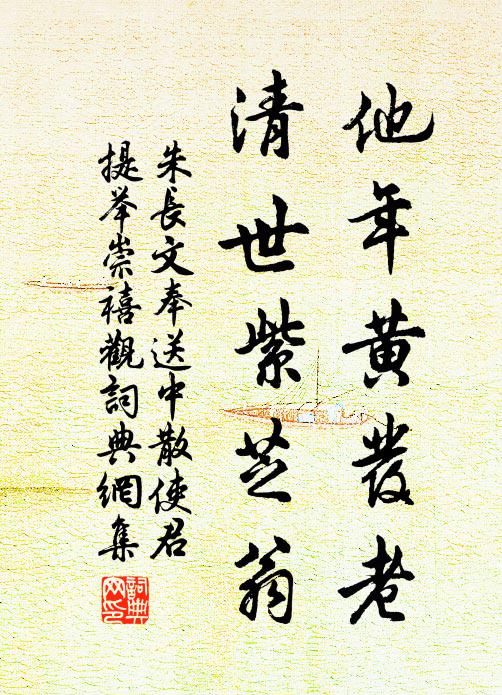 他年黃發老
清世紫芝翁
朱長文奉送中散使君
提举崇禧觀詞典網集
詞典網印